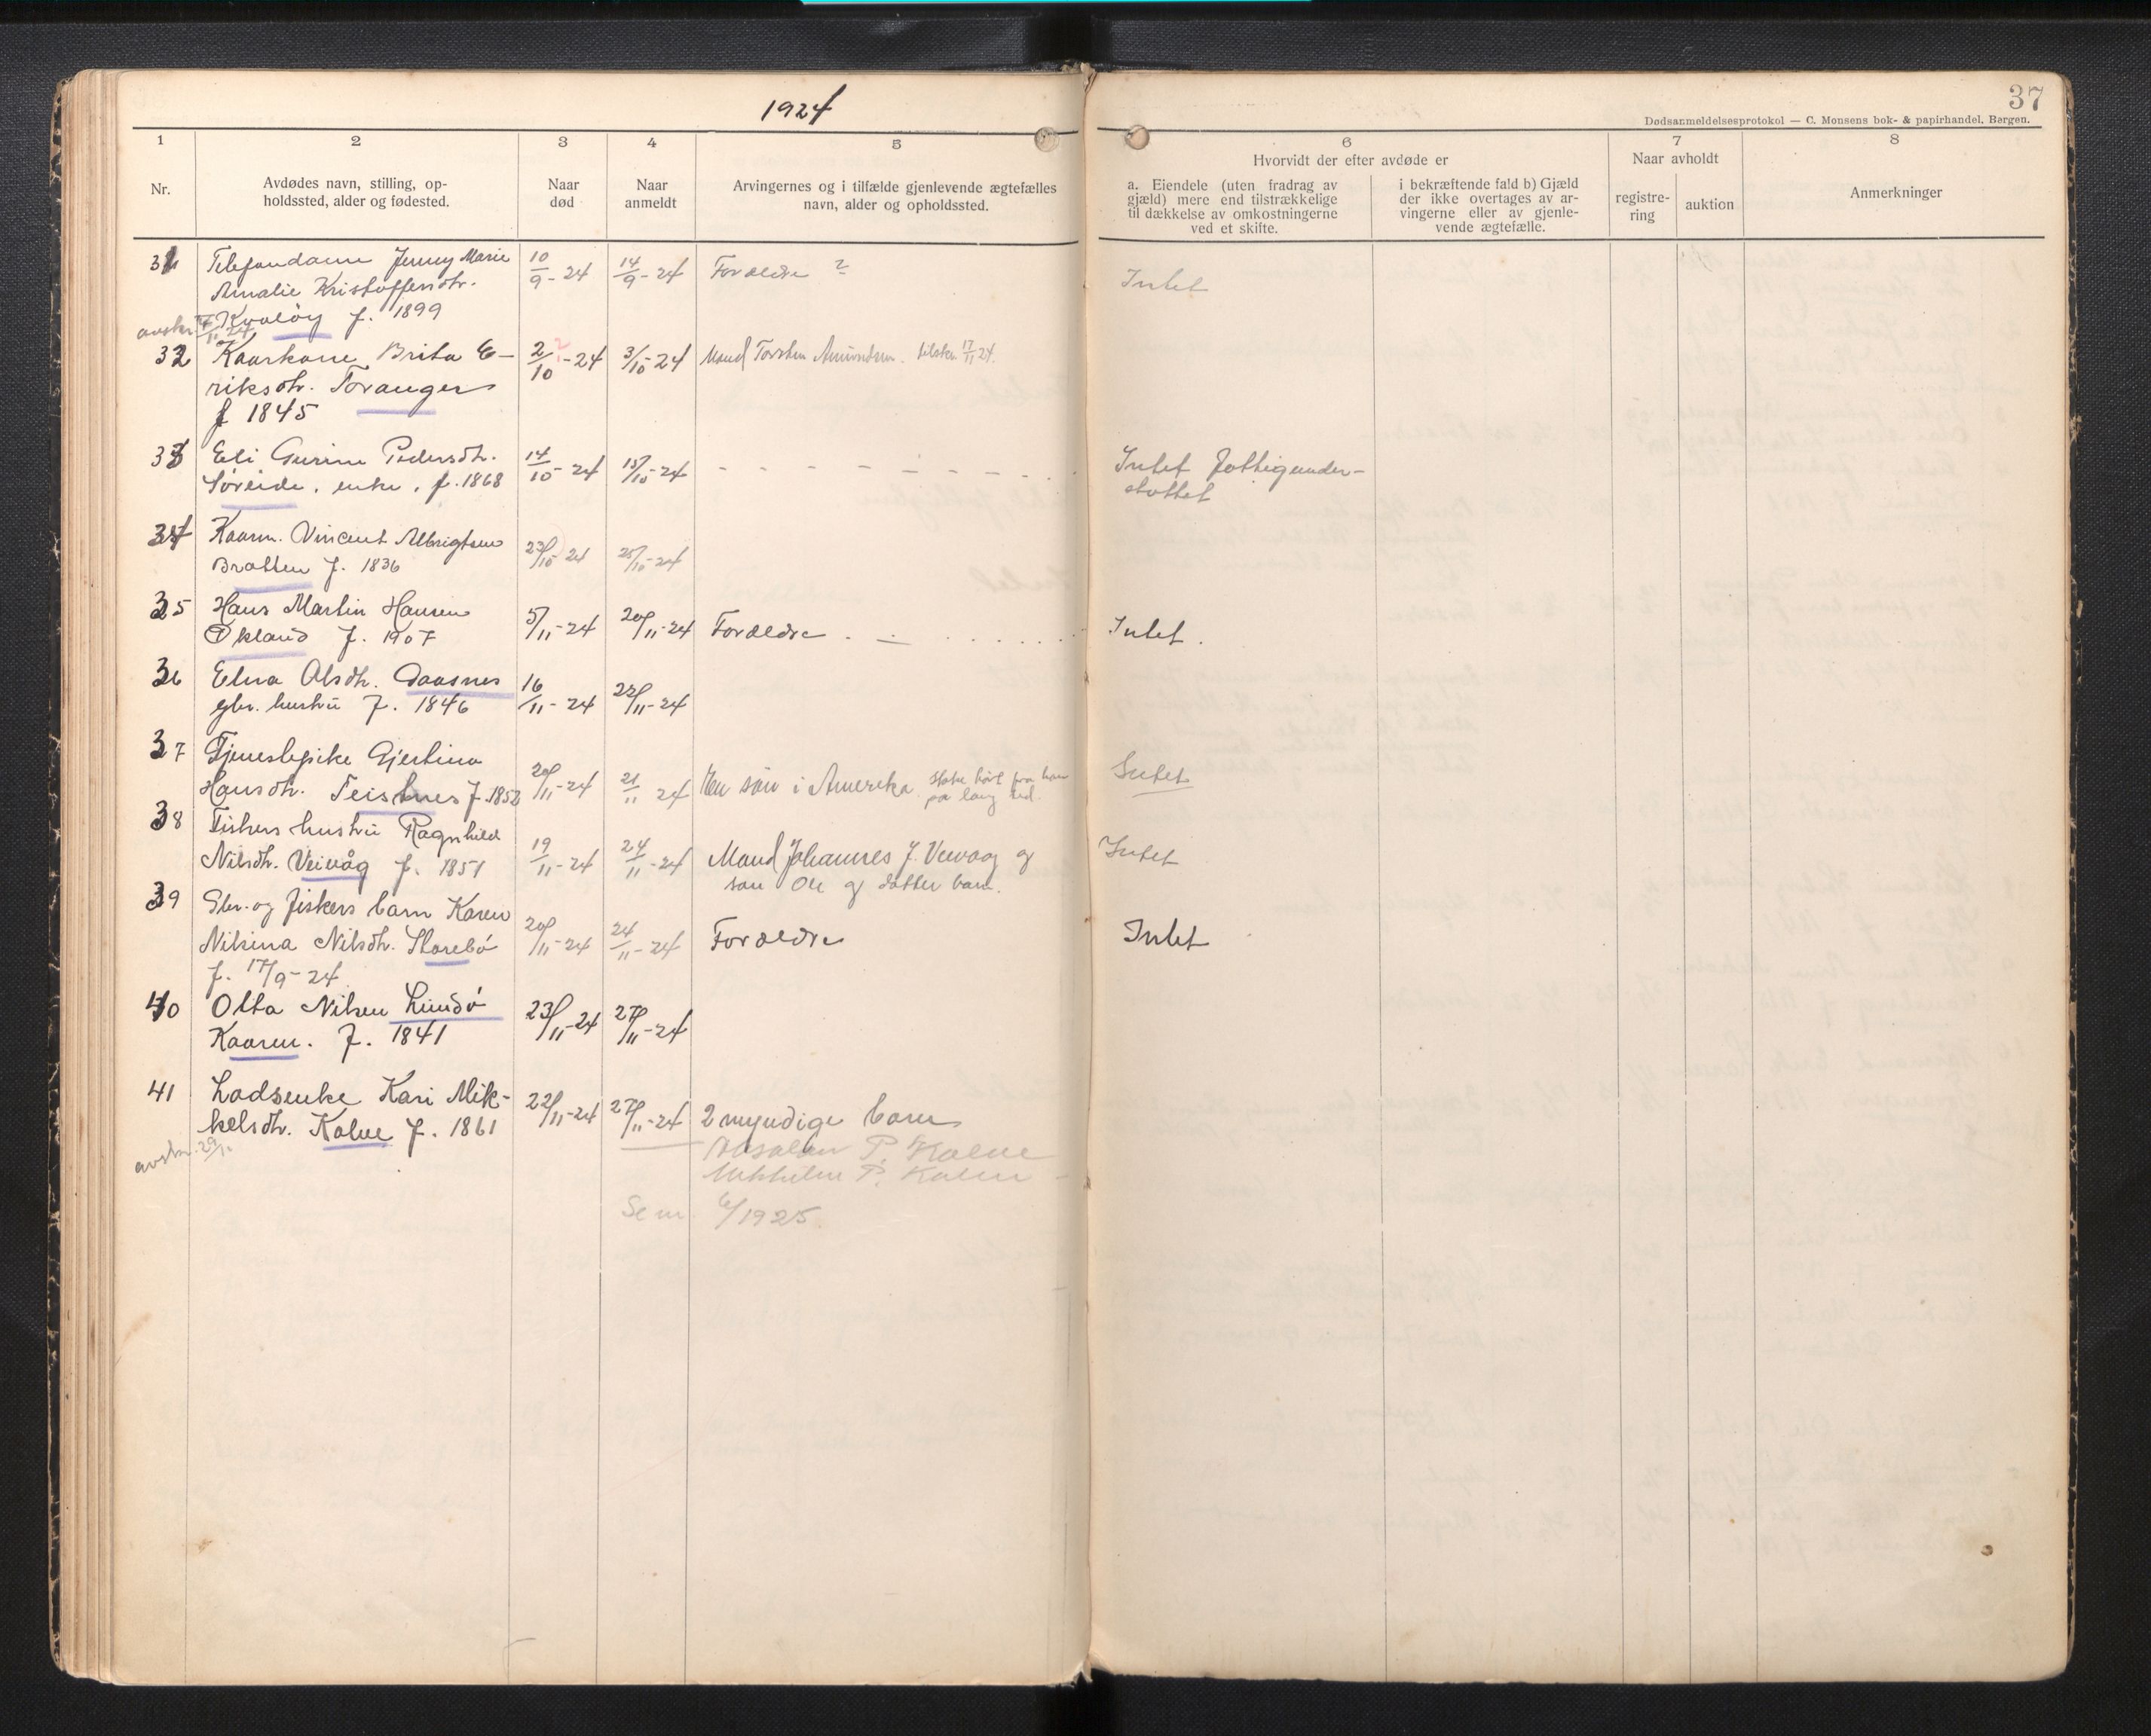 1924
37
Dødsanmeldelsesprotokol — C. Monsens bok- & papirhandel. Bergen.
1
2
3
4
5
6
7
8
Nr.
Avdødes navn, stilling, op-
holdssted, alder og fødested.
Naar
død
Naar
anmeldt
Arvingernes og i tilfælde gjenlevende ægtefælles
navn, alder og opholdssted.
Hvorvidt der efter avdøde er
a. Eiendele (uten fradrag av
gjæld) mere end tilstrækkelige
til dækkelse av omkostningerne
ved et skifte.
i bekræftende fald b) Gjæld
der ikke overtages av ar-
vingerne eller av gjenle-
vende ægtefælle.
Naar avholdt
registre-
ring
auktion
Anmerkninger
31 Telefondame Jenny Marie 10/9-24 14/9-24 Forældre ? Intet
Amalie Kristoffersdtr.
Kvaløy f. 1899
32 Kaarkone Brita E- 2/10-24 3/10-24 Mand Torsten Amundsen. 17/11 24.
riksdtr. Toranger
f 1845
33 Eli Gurine Pedersdtr. 14/10-24 15/10-24 - - - - - - - - - Intet fattigunder-
Søreide, enke, f. 1868 støttet
34 Kaarm. Vincent Albrigtsen 23/10-24 25/10-24
Bratten f. 1836
35 Hans Martin Hansen 5/11-24 20/11-24 Forældre Intet.
Økland f. 1907
36 Elna Olsdtr. Gaasnes 16/11-24 22/11-24
gbr. hustru f. 1846
37 Tjenestepike Gjertina 20/11-24 21/11 24 En søn i Amerika Intet
Hansdtr. Teistnes f. 1852 paa lang tid.
38 Fiskers hustru Ragnhild 19/11-24 24/11-24 Mand Johannes J. Veivaag og Intet
Nilsdtr. Veivåg f. 1851 søn Ole og datter barn.
39 Gbr. og fiskers barn Karen 20/11-24 24/11-24 Forældre Intet
Nilsina Nilsdtr. Storebø
f. 17/9-24
40 Olta Nilsen Lindø 23/11-24 27/11-24
Kaarm. f. 1841
41 Lodsenke Kari Mik- 22/11-24 27/11-24 2 myndige barn
kelsdtr. Kalve f. 1861
avskr. 29/11
Absalon P. Kalve
P. Kalve
6/1925